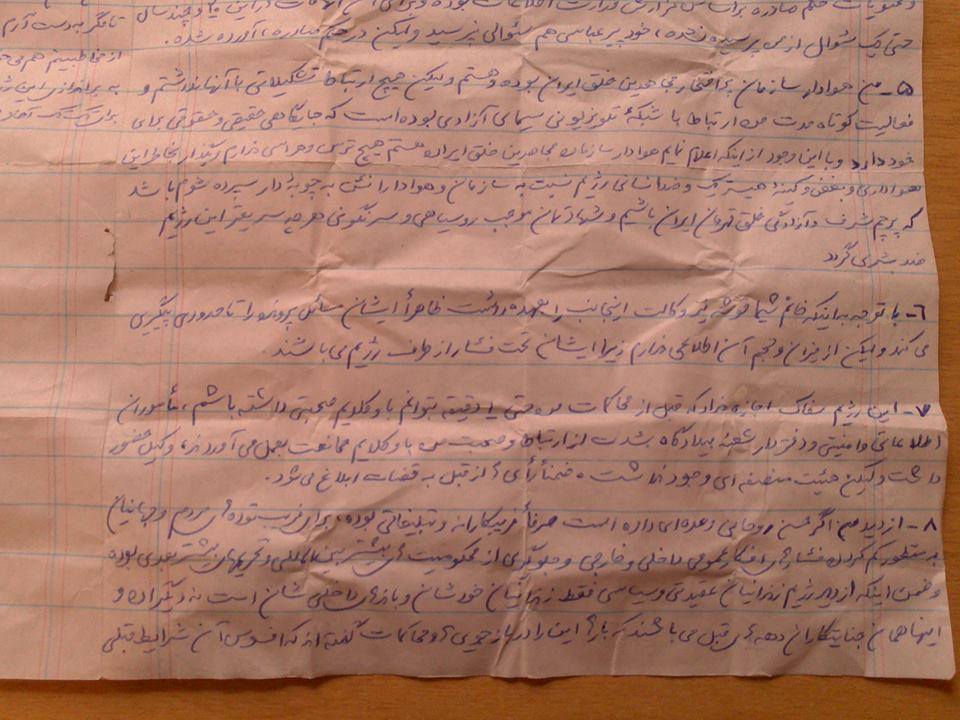 حتی یک سئوال از من پرسیده نشده، خود پیرعباسی هم سئوالی نپرسید ولیکن در حکم صادره، آورده شده.
۵- من هوادار سازمان پرافتخار مجاهدین خلق ایران بوده و هستم ولیکن هیچ ارتباط تشکیلاتی با آنها نداشتم و
فعالیت کوتاه مدت من ارتباط با شبکهٔ تلویزیونی سیمای آزادی بوده است که جایگاهی حقیقی و حقوقی برای
خود دارد و با این وجود از اینکه اعلام نمایم هوادار سازمان مجاهدین خلق ایران هستم هیچ ترس و هراسی ندارم و بگذار بخاطر این
هواداری و بغض و کینهٔ هیستریک و ضدانسانی رژیم نسبت به سازمان و هوادارانش به چوبهٔ دار سپرده شوم باشد
که پرچم شرف و آزادگی خلق قهرمان ایران باشیم و شهادتمان موجب روسیاهی و سرنگونی هرچه سریعتر این رژیم
ضد بشری گردد
۶- با توجه به اینکه خانم شیما قوشه نیز وکالت اینجانب را بعهده داشت ظاهرأ ایشان مسائل پرونده را تا حدودی پیگیری
می کند ولیکن از میزان و حجم آن اطلاعی ندارم زیرا ایشان تحت فشار از طرف رژیم می باشند.
۷- این رژیم سفاک اجازه نداد که قبل از محاکمات من حتی یک دقیقه بتوانم با وکلایم صحبتی داشته باشم، مأموران
اطلاعاتی و امنیتی و دفتردار شعبهٔ بیدادگاه بشدت از ارتباط و صحبت من با وکلایم ممانعت بعمل می آوردند، وکیل حضور
داشت ولیکن هیئت منصفه ای وجود نداشت، ضمنأ رأی از قبل به قضات ابلاغ می شود.
۸- از دید من اگر حسن روحانی وعده ای داده است صرفأ فریبکارانه و تبلیغاتی بوده، برای فریب توده مردم و جهانیان
به منظور کم کردن فشار افکار عمومی داخلی و خارجی و جلوگیری از محکومیت های بیشتر بین المللی و تحریمهای بیشتر بعدی بوده
و ضمن اینکه از دید رژیم زندانیان عقیدتی و سیاسی فقط زندانیان خودشان و باندهای داخلی شان است نه دیگران و
اینها همان جنایتکاران دهه های قبل می باشند که بارها این را در بازجویی و محاکمات گفته اند که افسوس آن شرایط قبلی